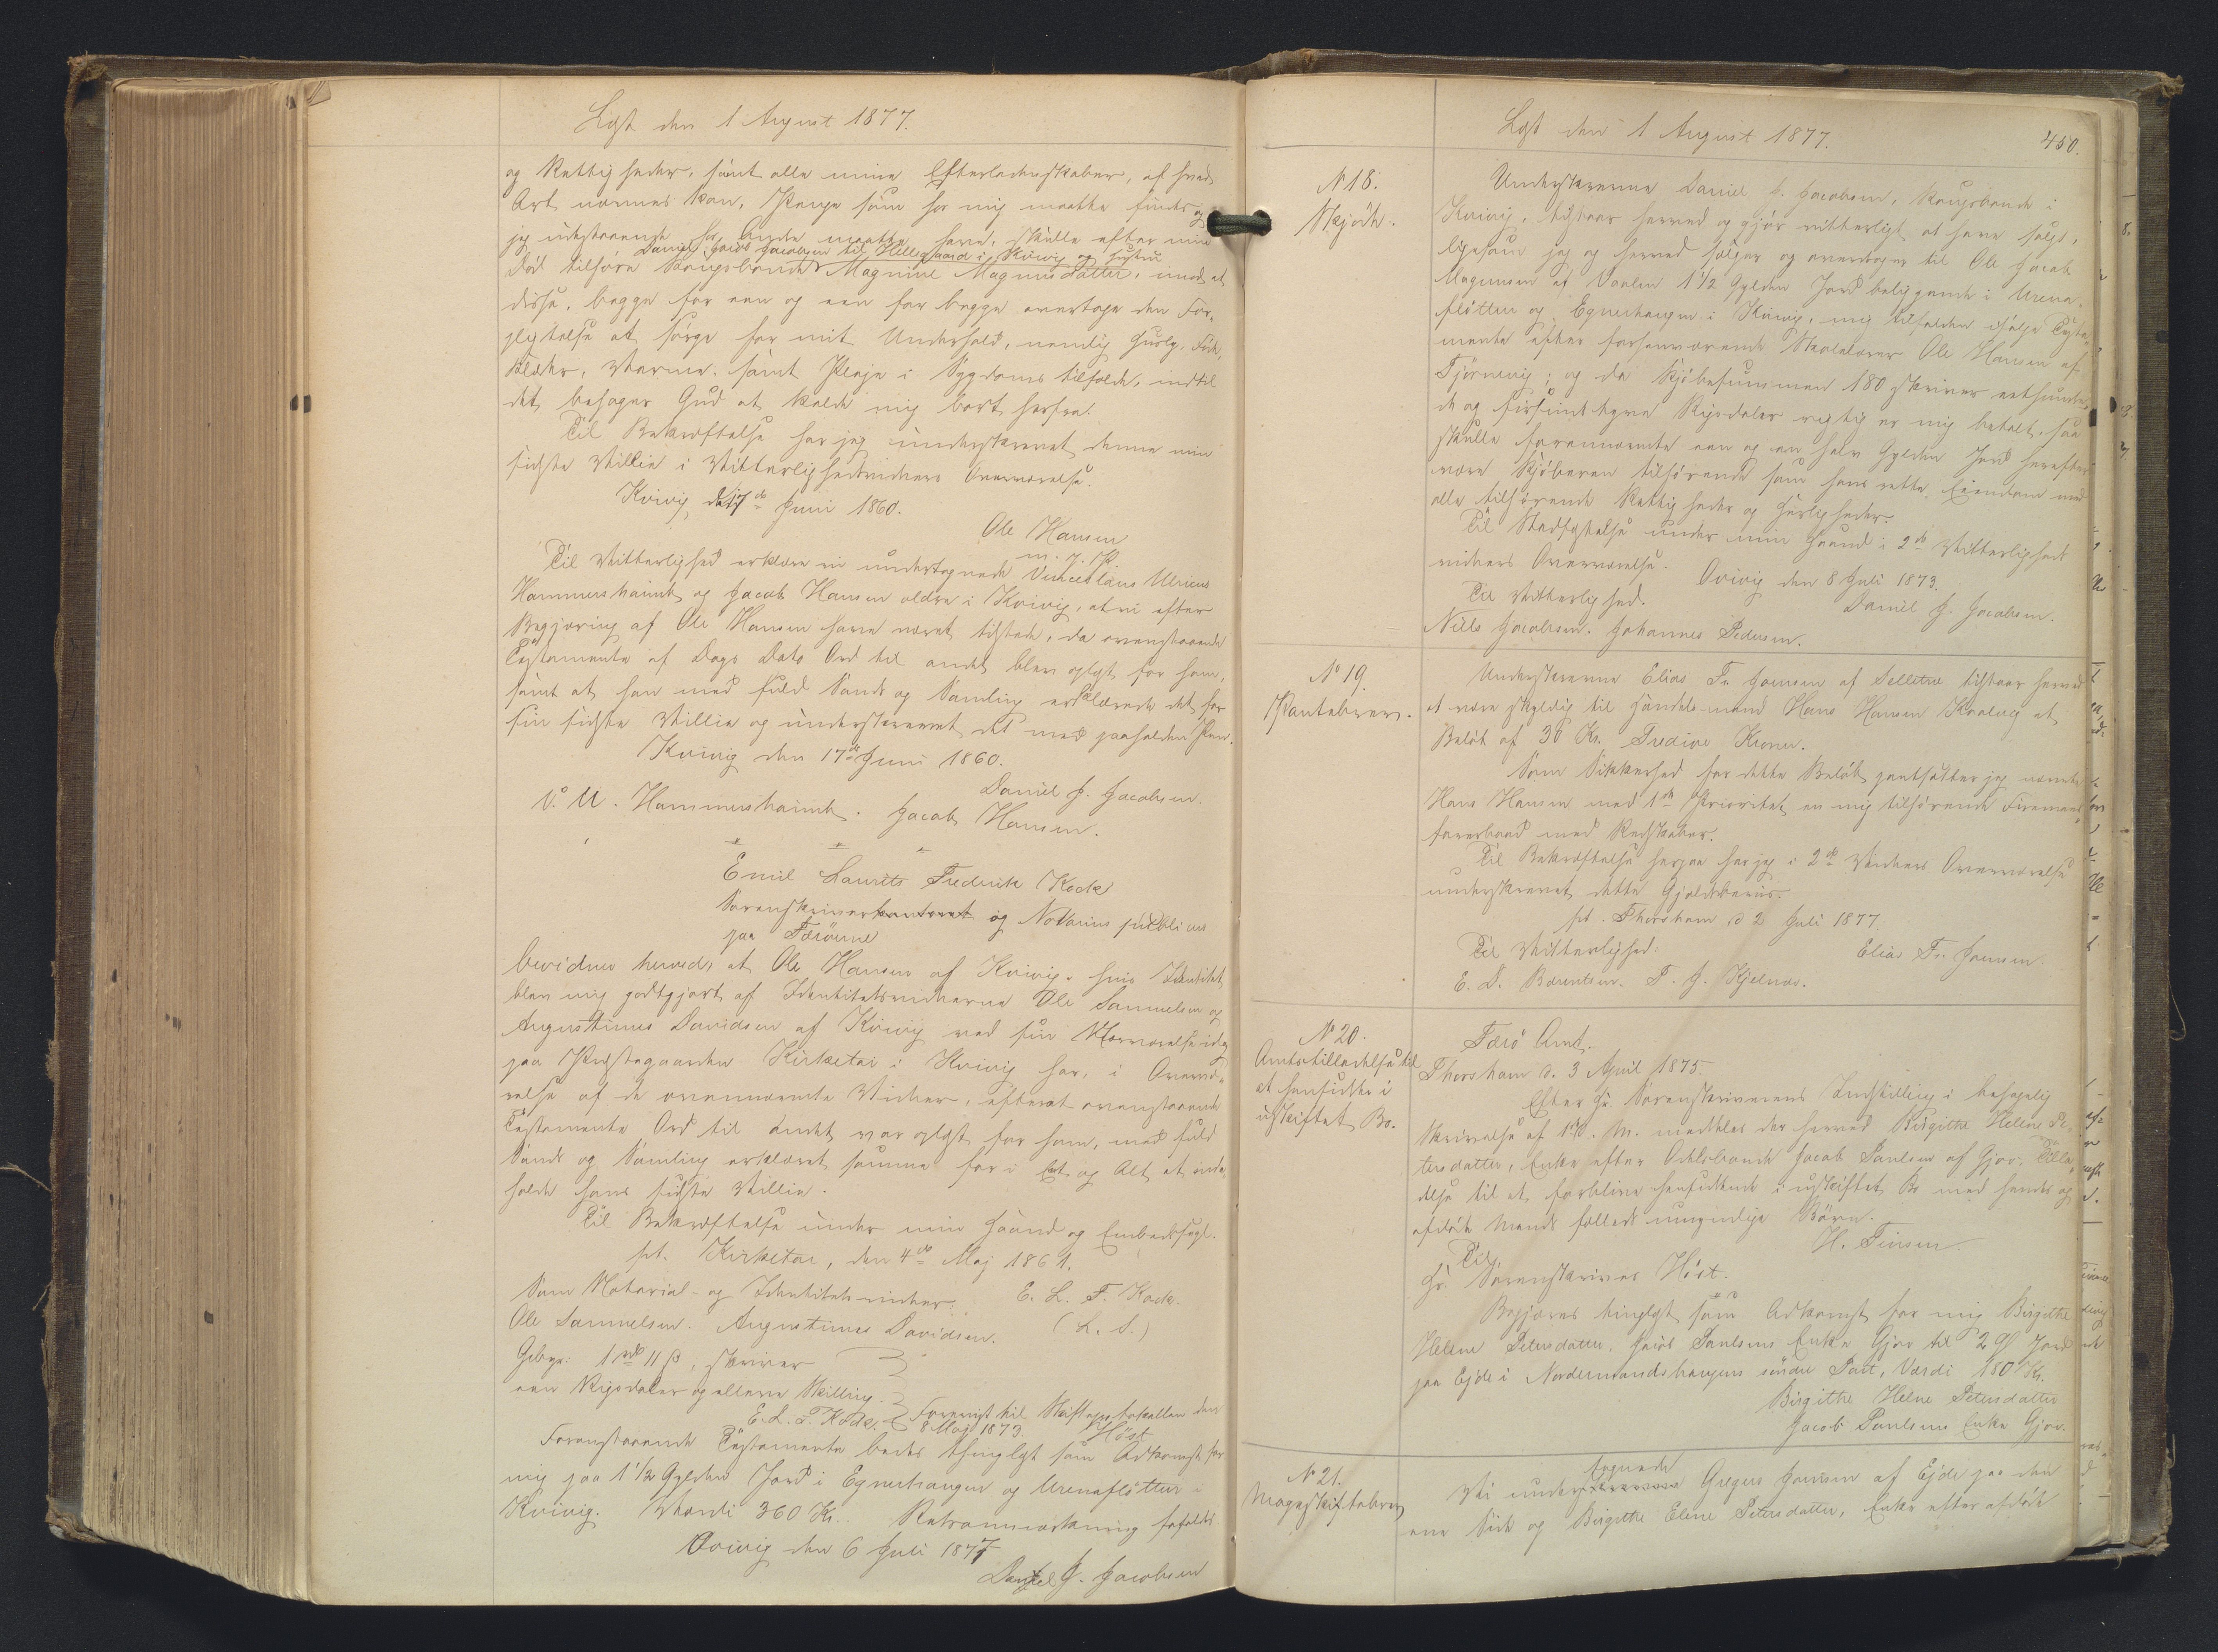 Læst den 1 August 1877.
og Rettigheder, samt alle mine Efterladenskaber, af hvad
Art nævnes kan, Penge som hos mig maatte findes og
jeg udestaaende hos Andre maatte have, skulle efter min
Daniel Jacob Jacobsen til Hellegaard i Kvivig og Hustru
Død tilhøre Kongsbonde Magnine Magnusdatter, imod at
disse, begge for een og een for begge overtage den For¬
pligtelse at sørge for mit Underhold, nemlig Huslye, Føde,
Klæder, Varme, samt Pleje i Sygdoms tilfælde, indtil
det behager Gud at kalde mig bort herfra.
Til Bekræftelse har jeg underskrevet denne min
sidste Villie i Vitterlighedsvidners Overværelse.
Kvivig, d. 17de Juni 1860.
Ole Hansen
m. p. P.
Til Vitterlighed erklære vi undertegnede Venceslaus Ulricus
Hammershaimb og Jacob Hansen ældre i Kvivig, at vi efter
Begjæring af Ole Hansen have været tilstede, da ovenstaaende
Testamente af Dags Dato Ord til andet blev oplæst for ham,
samt at han med fuld Sands og Samling erklærede det for
sin sidste Villie og underskrevet det med paaholden Pen.
Kvivig den 17de Juni 1860.
Daniel J. Jacobsen.
V. U. Hammershaimb. Jacob Hansen.
Emil Laurits Frederik Kock
Sorenskriver og Notarius publicus
paa Færöerne
bevidner herved, at Ole Hansen af Kvivig, hvis Identitet
blev mig godtgjort af Identitetsvidnerne Ole Samuelsen og
Augustinus Davidsen af Kvivig ved sin Nærværelse idag
paa Præstegaarden Kirketai i Kvivig har, i Overvæ¬
relse af de ovennævnte Vidner, efterat ovenstaaende
Testamente Ord til andet var oplæst for ham, med fuld
Sands og Samling erklæret samme for i Et og Alt at inde¬
holde hans sidste Villie.
Til Bekræftelse under min Haand og Embedssegl.
pt. Kirketai, den 4de Maj 1861.
Som Notarial- og Identitetsvidner. E. L. F. Kock.
Ole Samuelsen. Augustinus Davidsen. (L. S.)
Gebyr: 1 rd 11 ß, skriver
een Rigsdaler og elleve Skilling.
E. L. F. Kock. Forevist til Skifteprotokollen den
8 Maj 1873. Höst
Foranstaaende Testamente bedes thinglæst som Adkomst for
mig paa 1 1/2 Gylden Jord i Egnerhaugen og Urenafløtten i
Kvivig. Værdi 360 Kr. Retsanmærkning frafaldes.
Qvivig den 6 Juli 1877
Daniel J. Jacobsen
Læst den 1 August 1877.
450.
N 18.
Skjöde.
Underskrevne Daniel J. Jacobsen, Kongsbonde i
Kvivig, tilstaar herved og gjør vitterligt at have solgt,
ligesom jeg og herved sælger og overdrager til Ole Jacob
Magnusen af Vaalen 1 1/2 Gylden Jord beliggende i Urena¬
fløtten og Egnerhaugen i Kvivig, mig tilfalden ifølge Testa¬
mente efter forhenværende Skolelærer Ole Hansen af
Tjörnevig; og da Kjöbesummen 180 skriver eethundre¬
de og firsindstyve Rigsdaler rigtig er mig betalt, saa
skulle forannævnte een og en halv Gylden Jord herefter
være Kjöberen tilhörende som hans rette Eiendom med
alle tilhörende Rettigheder og Herligheder.
Til Stadfæstelse under min Haand i 2de Vitterligheds
vidners Overværelse.
Qvivig den 8 Juli 1873.
Til Vitterlighed.
Daniel J. Jacobsen.
Niels Jacobsen. Johannes Pedersen.
No 19.
Pantebrev.
Underskrevne Elias Fr. Joensen af Selletræ tilstaar herved
at være skyldig til Handelsmand Hans Hansen Kvalvig et
Beløb af 30 Kr. Tredive Kroner.
Som Sikkerhed for dette Beløb pantsætter jeg nævnte
Hans Hansen med 1ste Prioritet en mig tilhørende Firemands¬
farerbaad med Redskaber.
Til Bekræftelse herpaa har jeg i 2de Vidners Overværelse
underskrevet dette Gjældsbeviis.
pt. Thorshavn d 2 Juli 1877.
Til Vitterlighed:
Elias Fr. Joensen
E. D. Bærentsen. T. J. Kjelnæs.
No 20.
Amtstilladelse til
at hensidde i
uskiftet Bo.
Færö Amt.
Thorshavn d. 3 April 1875.
Efter Hr. Sorenskriverens Indstilling i behagelig
Skrivelse af 1ste d. M. meddeles der herved Birgithe Helene Pe¬
tersdatter, Enke efter Odelsbonde Jacob Paulsen af Gjov, Tilla¬
delse til at forblive hensiddende i uskiftet Bo med hendes og
afdøde Mands fælleds umyndige Börn.
H. Finsen.
Til
Hr. Sorenskriver Höst.
Begjæres tinglæst som Adkomst for mig Birgithe
Helene Petersdatter, Jacob Paulsens Enke Gjov til 2 Gl Jord
paa Ejde i Nordermandshaugens söndre Part, Værdi 180 Kr.
Birgithe Helene Petersdatter
Jacob Paulsens Enke Gjov.
No 21.
Mageskiftebrev
tegnede
Vi under Gregers Joensen af Ejde paa den
ene Side og Birgithe Elene Petersdatter, Enke efter afdøde